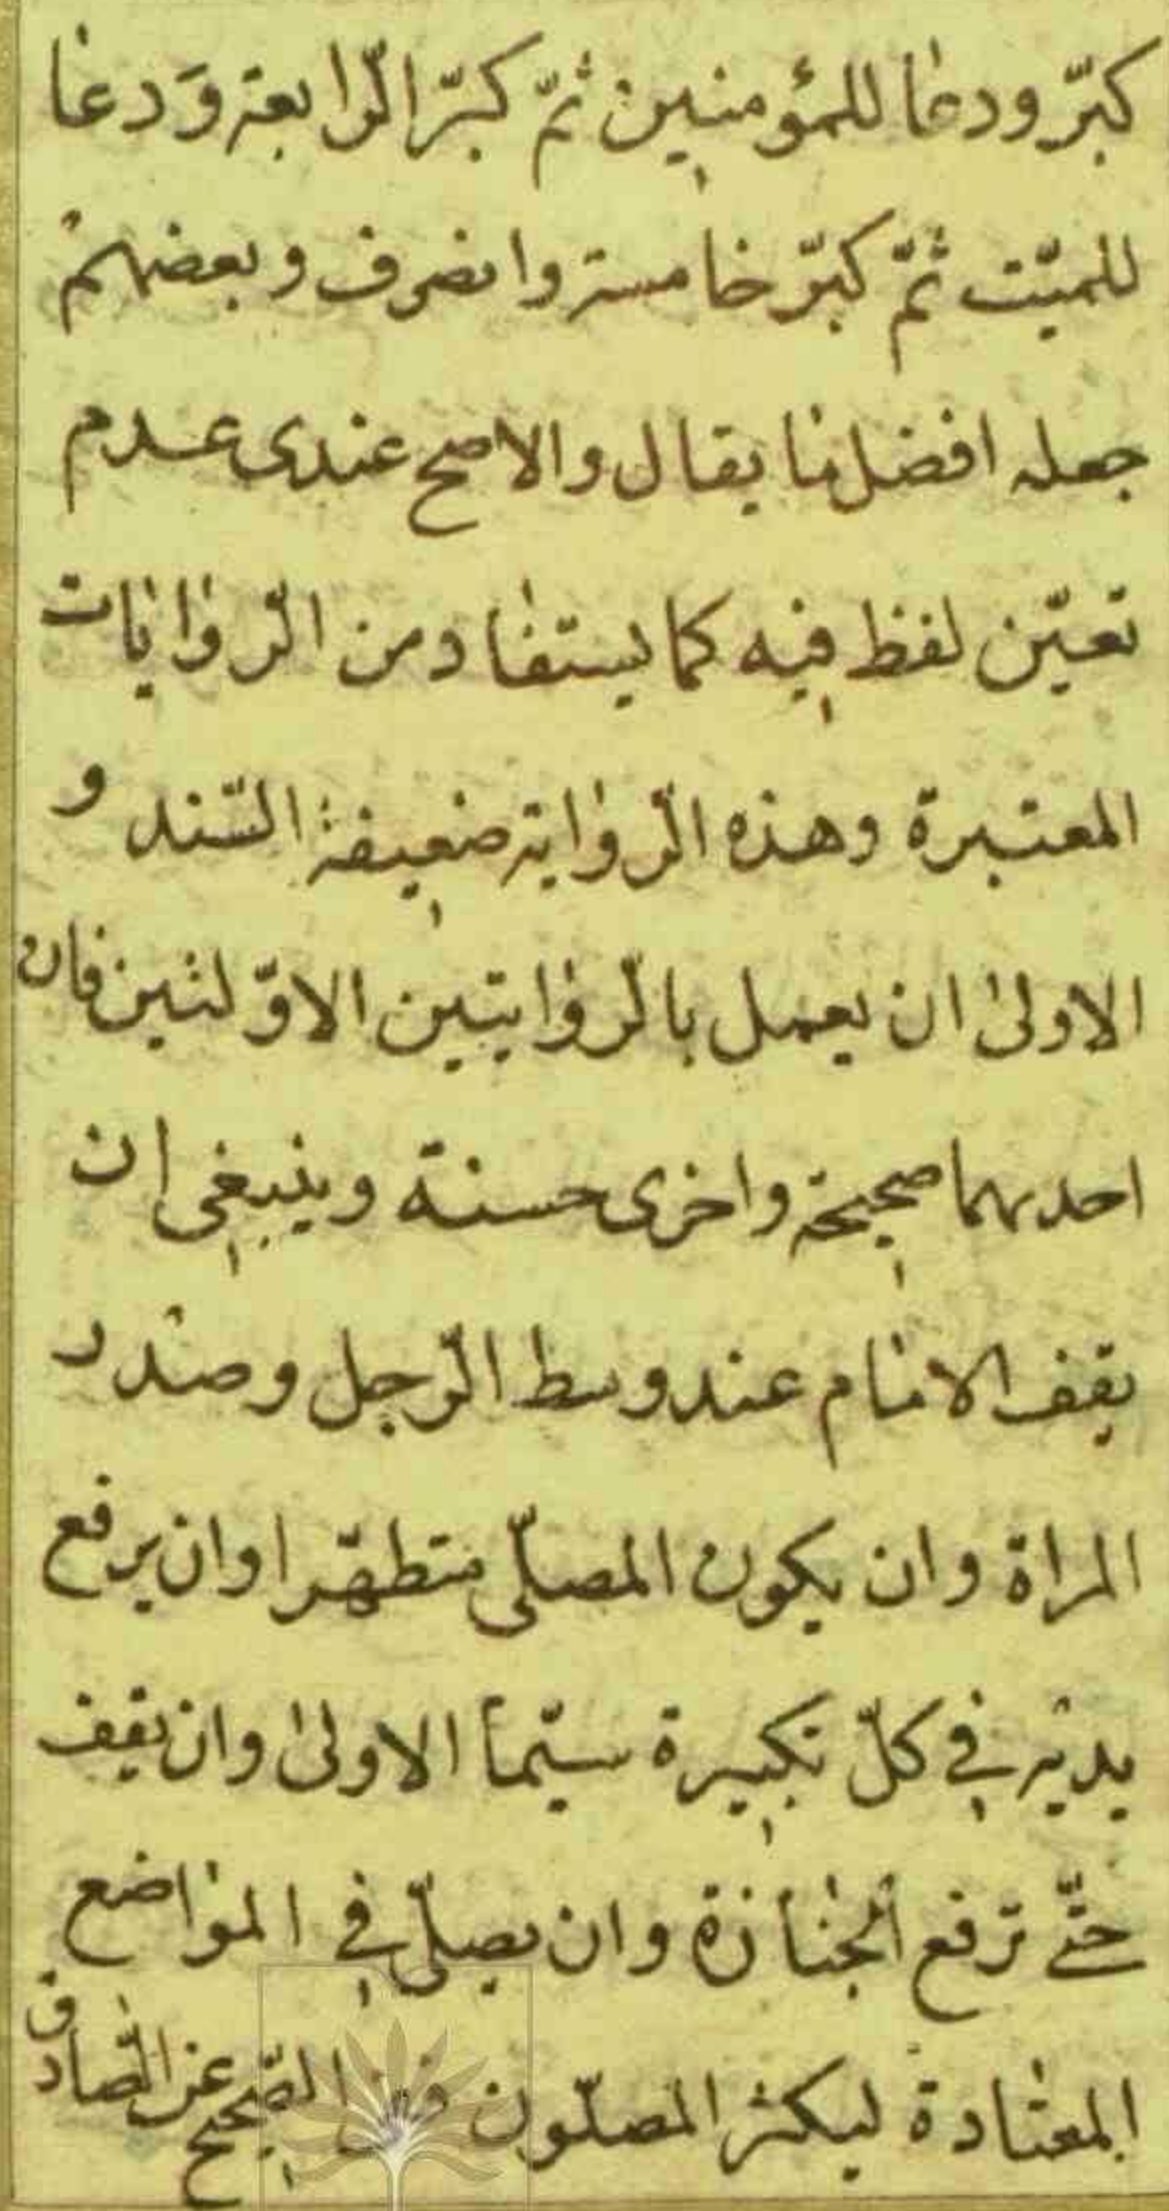 كبّر ودعا للمؤمنين ثمّ كبّر الرّابعة وَدعا
للميّت ثمّ كبّر خامسة وانصرف وبعضهم
جعله افضل ما يقال والاصح عندى عدم
تعيّن لفظ فيه كما يستفاد من الرّوايات
المعتبرة وهذه الرّواية ضعيفة السّند و
الاولى ان يعمل بالرّوايتين الاوّلتين فان
احديهما صحيحة واخرى حسنة وينبغى ان
يقف الامام عند وسط الرّجل وصدر
المراة وان يكون المصلّى متطهّرا وان يرفع
يديه في كلّ تكبيرة سيّما الاولى وان يقف
حتّى ترفع الجنازة وان يصلّى في المواضع
المعتادة ليكثر المصلّون الصّحيح عن الصّادق